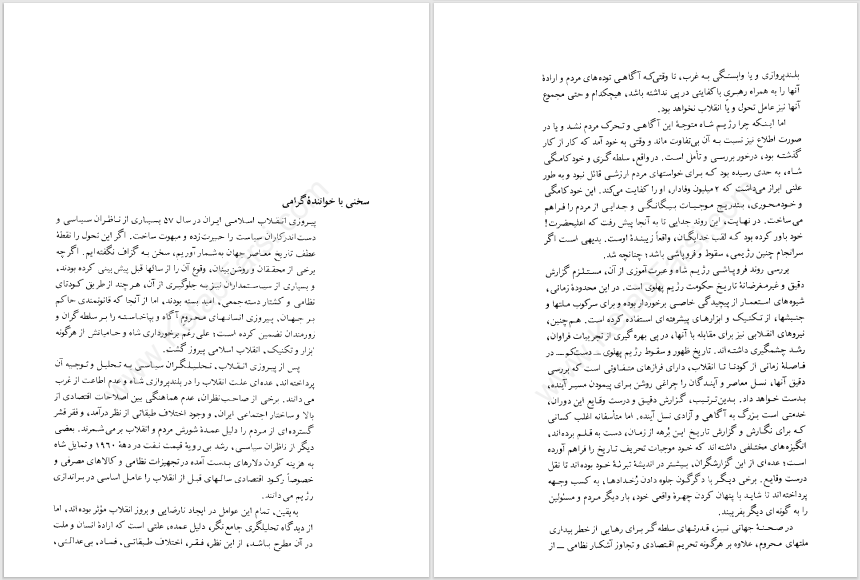 سخنی با خوانندهٔ گرامی
پیروزی انقلاب اسلامی ایران در سال ۵۷ بسیاری از ناظران سیاسی و
دست‌اندرکاران سیاست را حیرت‌زده و مبهوت ساخت. اگر این تحول را نقطهٔ
عطف تاریخ معاصر جهان به‌شمار آوریم، سخن به گزاف نگفته‌ایم. اگر چه
برخی از محققان و روشن‌بینان، وقوع آن را از سالها قبل پیش‌بینی کرده بودند،
و بسیاری از سیاستمداران نیز به جلوگیری از آن، هر چند از طریق کودتای
نظامی و کشتار دسته‌جمعی، امید بسته بودند، اما از آنجا که قانونمندی حاکم
بر جهان، پیروزی انسانهای محروم آگاه و بپاخاسته را بر سلطه‌گران و
زورمندان تضمین کرده است؛ علی‌رغم برخورداری شاه و حامیانش از هرگونه
ابزار و تکنیک، انقلاب اسلامی پیروز گشت.
پس از پیروزی انقلاب، تحلیلگران سیاسی به تحلیل و توجیه آن
پرداخته‌اند. عده‌ای علت انقلاب را در بلندپروازی شاه و عدم اطاعت از غرب
می‌دانند. برخی از صاحب‌نظران، عدم هماهنگی بین اصلاحات اقتصادی از
بالا و ساختار اجتماعی ایران، و وجود اختلاف طبقاتی از نظر درآمد، و فقر قشر
گسترده‌ای از مردم را دلیل عمدهٔ شورش مردم و انقلاب برمی‌شمرند. بعضی
دیگر از ناظران سیاسی، رشد بی‌رویهٔ قیمت نفت در دههٔ ۱۹۶۰ و تمایل شاه
به هزینه کردن دلارهای بدست آمده در تجهیزات نظامی و کالاهای مصرفی و
خصوصاً رکود اقتصادی سالهای قبل از انقلاب را عامل اساسی در براندازی
رژیم می‌دانند.
به‌یقین، تمام این عوامل در ایجاد نارضایی و بروز انقلاب مؤثر بوده‌اند، اما
از دیدگاه تحلیلگری جامع‌نگر، دلیل عمده، علتی است که ارادهٔ انسان و ملت
در آن مطرح باشد. از این نظر، فقر، اختلاف طبقاتی، فساد، بی‌عدالتی،
بلندپروازی و یا وابستگی به غرب، تا وقتی‌که آگاهی توده‌های مردم و ارادهٔ
آنها را به همراه رهبری باکفایتی در پی نداشته باشد، هیچکدام و حتی مجموع
آنها نیز عامل تحول و یا انقلاب نخواهد بود.
اما اینکه چرا رژیم شاه متوجهٔ این آگاهی و تحرک مردم نشد و یا در
صورت اطلاع نیز نسبت به آن بی‌تفاوت ماند و وقتی به خود آمد که کار از کار
گذشته بود، درخور بررسی و تأمل است. در واقع، سلطه‌گری و خودکامگی
شاه، به حدی رسیده بود که برای خواستهای مردم ارزشی قائل نبود و به طور
علنی ابراز می‌داشت که ۲ میلیون وفادار، او را کفایت می‌کند. این خودکامگی
و خودمحوری، بتدریج موجبات بیگانگی و جدایی از مردم را فراهم
می‌ساخت. در نهایت، این روند جدایی تا به آنجا پیش رفت که اعلیحضرت!
خود باور کرده بود که لقب خدایگان، واقعاً زیبندهٔ اوست. بدیهی است اگر
سرانجام چنین رژیمی، سقوط و فروپاشی باشد؛ چنانچه شد.
بررسی روند فروپاشی رژیم شاه و عبرت‌آموزی از آن، مستلزم گزارش
دقیق و غیرمغرضانهٔ تاریخ حکومت رژیم پهلوی است. در این محدودهٔ زمانی،
شیوه‌های استعمار از پیچیدگی خاصی برخوردار بوده و برای سرکوب ملتها و
جنبشها، از تکنیک و ابزارهای پیشرفته‌ای استفاده کرده است. هم‌چنین،
نیروهای انقلابی نیز برای مقابله با آنها، در پی بهره‌گیری از تجربیات فراوان،
رشد چشمگیری داشته‌اند. تاریخ ظهور و سقوط رژیم پهلوی ــ دستکم ــ در
فاصلهٔ زمانی از کودتا تا انقلاب، دارای فرازهای متفاوتی است که بررسی
دقیق آنها، نسل معاصر و آیندگان را چراغی روشن برای پیمودن مسیر آینده،
بدست خواهد داد. بدین‌ترتیب، گزارش دقیق و درست وقایع این دوران،
خدمتی است بزرگ به آگاهی و آزادی نسل آینده. اما متأسفانه اغلب کسانی
که برای نگارش و گزارش تاریخ این بُرهه از زمان، دست به قلم برده‌اند،
انگیزه‌های مختلفی داشته‌اند که خود موجبات تحریف تاریخ را فراهم آورده
است؛ عده‌ای از این گزارشگران، بیشتر در اندیشهٔ تبرئهٔ خود بوده‌اند تا نقل
درست وقایع. برخی دیگر با دگرگون جلوه دادن رُخدادها، به کسب وجهه
پرداخته‌اند تا شاید با پنهان کردن چهرهٔ واقعی خود، بار دیگر مردم و مسئولین
را به گونه‌ای دیگر بفریبند.
در صحنهٔ جهانی نیز، قدرتهای سلطه‌گر برای رهایی از خطر بیداری
ملتهای محروم، علاوه بر هرگونه تحریم اقتصادی و تجاوز آشکار نظامی ــ از